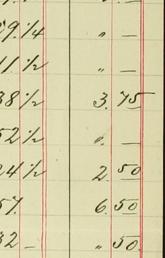 59.¼ " —
11½ " —
38½ 3.75
52½ " —
24½ 2.50
57. 6.50
32 — " 50